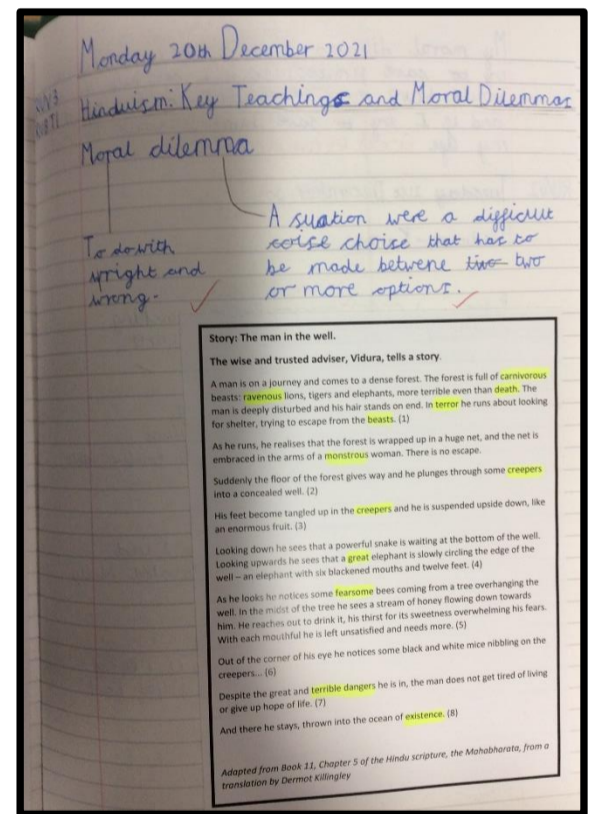 Monday 20th December 2021
Hinduism: Key Teachings and Moral Dilemmas
Moral dilemma
A suation were a difficult
coise choise that has to
be made betwene two two
or more options.
To do with
wright and
wrong.
Story: The man in the well.
The wise and trusted adviser, Vidura, tells a story.
A man is on a journey and comes to a dense forest. The forest is full of carnivorous
beasts: ravenous lions, tigers and elephants, more terrible even than death. The
man is deeply disturbed and his hair stands on end. In terror he runs about looking
for shelter, trying to escape from the beasts. (1)
As he runs, he realises that the forest is wrapped up in a huge net, and the net is
embraced in the arms of a monstrous woman. There is no escape.
Suddenly the floor of the forest gives way and he plunges through some creepers
into a concealed well. (2)
His feet become tangled up in the creepers and he is suspended upside down, like
an enormous fruit. (3)
Looking down he sees that a powerful snake is waiting at the bottom of the well.
Looking upwards he sees that a great elephant is slowly circling the edge of the
well – an elephant with six blackened mouths and twelve feet. (4)
As he looks he notices some fearsome bees coming from a tree overhanging the
well. In the midst of the tree he sees a stream of honey flowing down towards
him. He reaches out to drink it, his thirst for its sweetness overwhelming his fears.
With each mouthful he is left unsatisfied and needs more. (5)
Out of the corner of his eye he notices some black and white mice nibbling on the
creepers... (6)
Despite the great and terrible dangers he is in, the man does not get tired of living
or give up hope of life. (7)
And there he stays, thrown into the ocean of existence. (8)
Adapted from Book 11, Chapter 5 of the Hindu scripture, the Mahabharata, from a
translation by Dermot Killingley